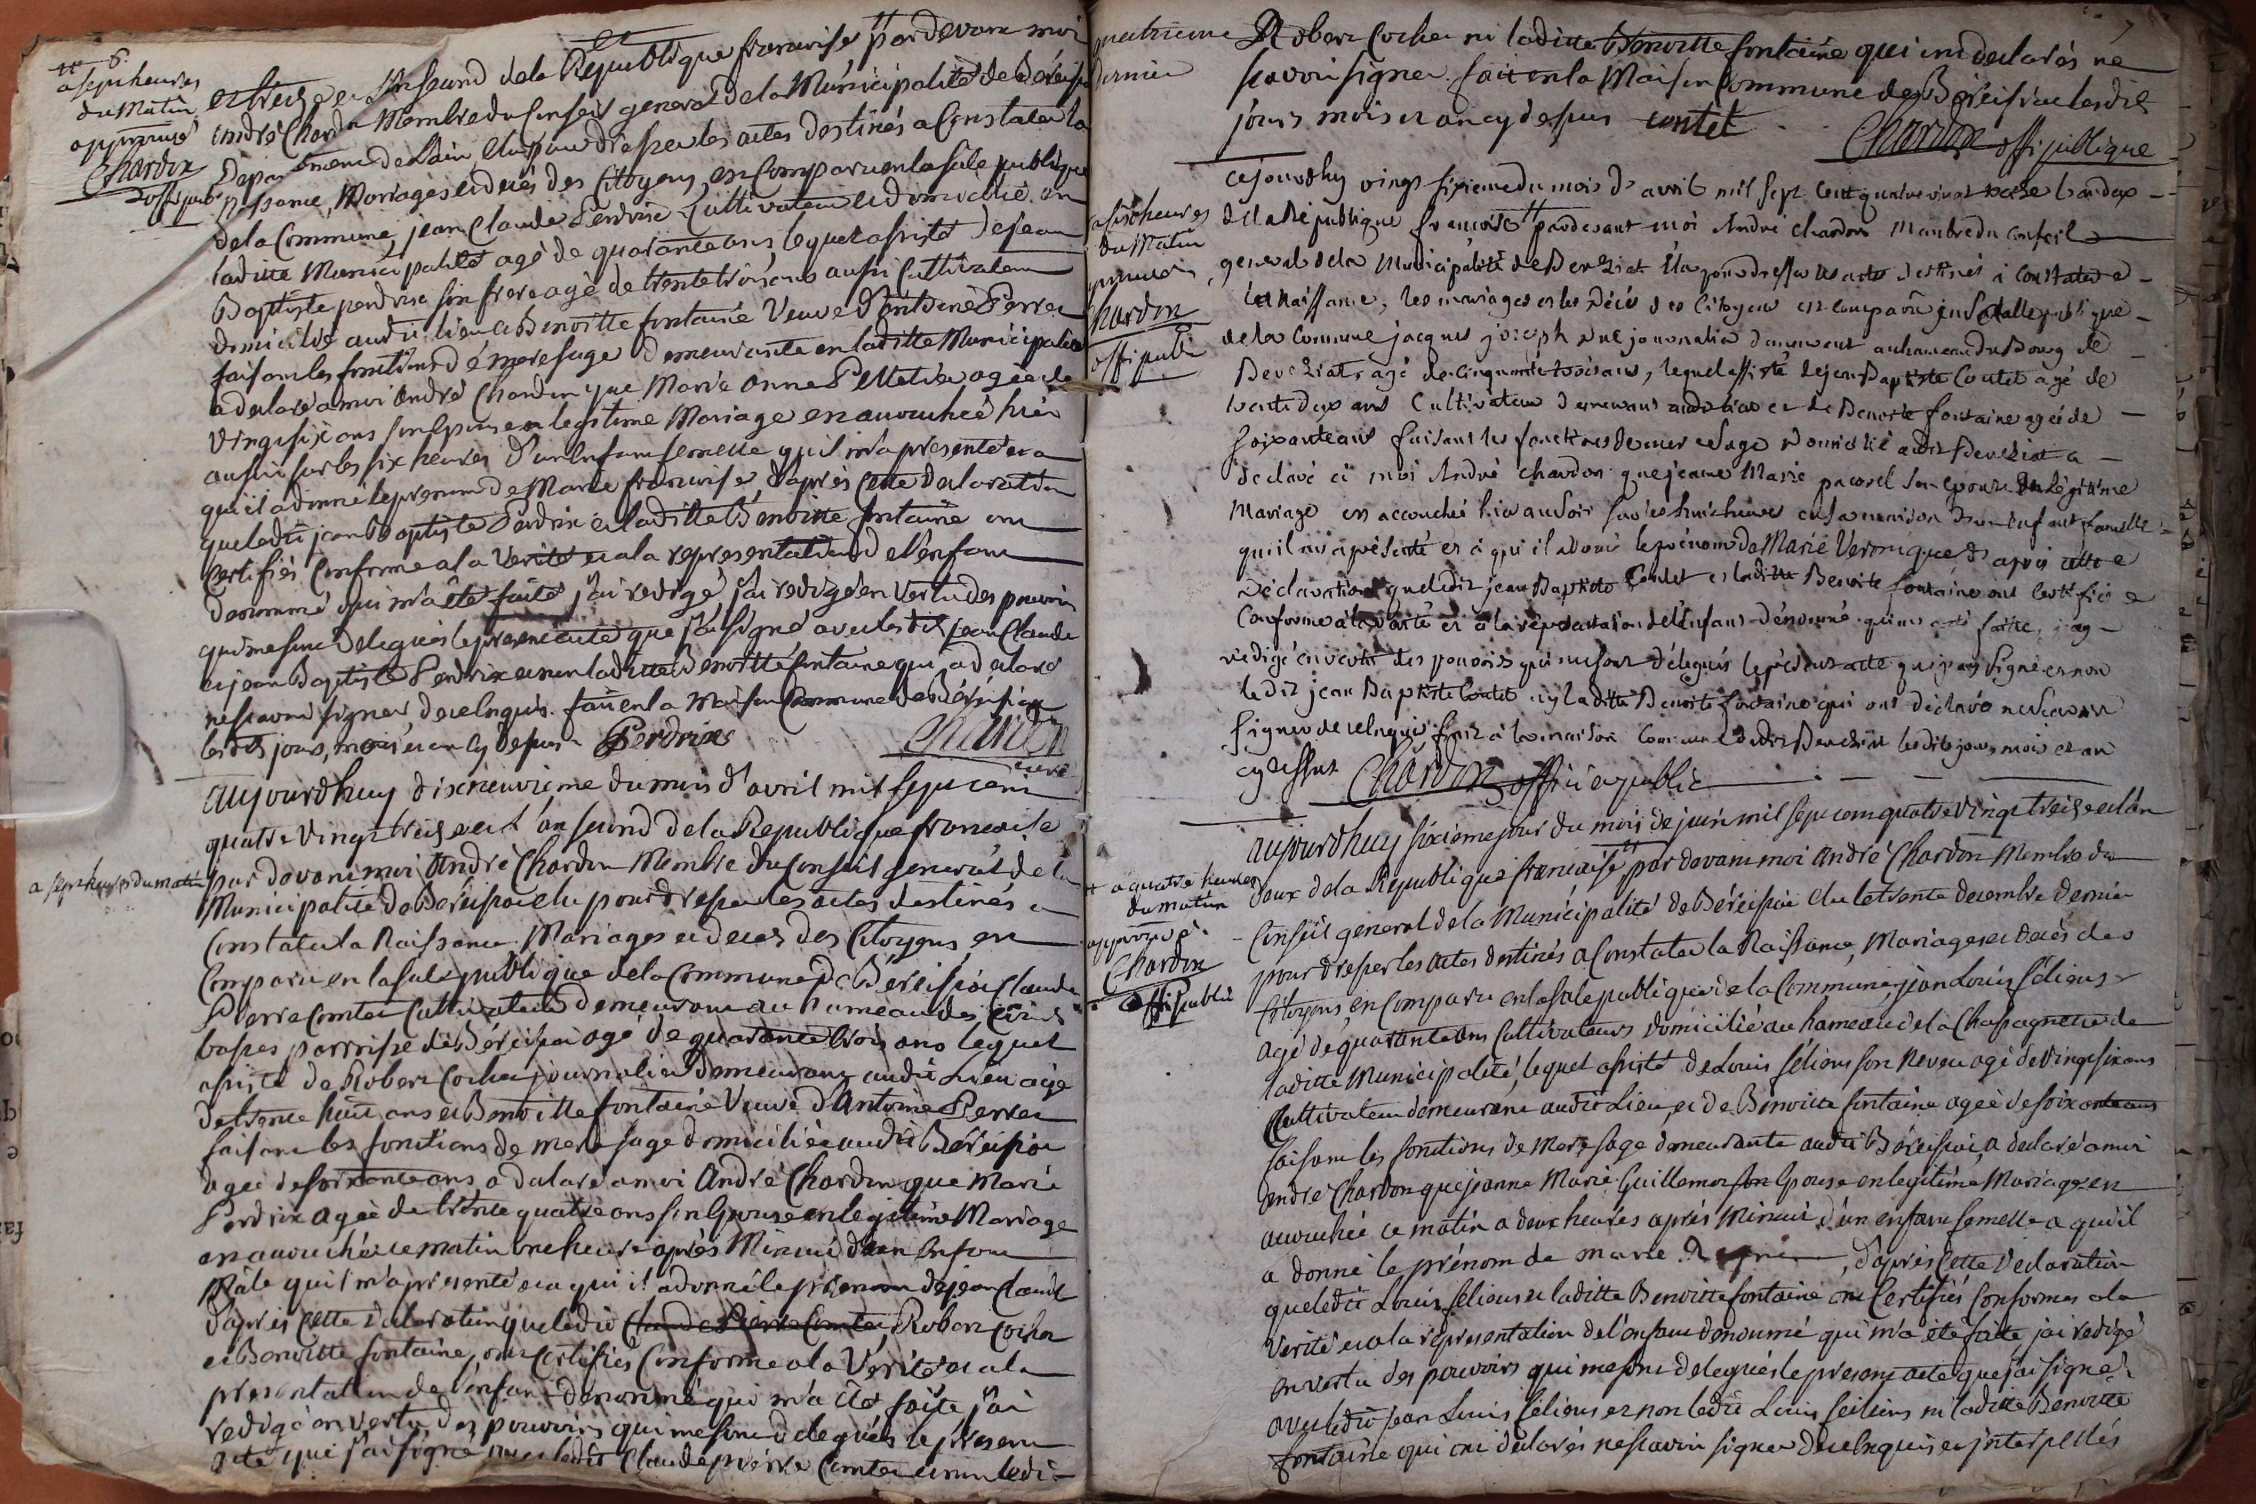 6.
a sept heures
du matin
approuvé
Chardon
offi publ
et treize et l'an second de la Republique francaise par devant moi
andré Chardon Membre du Conseil general de la Municipalité de Béréisia
Departement de l'ain, elu pour dresser les actes destinés a Constater la
naissance, Mariages et décés des Citoyens, est Comparu en la sale publique
de la Commune, jean Claude Perdrix Cultivateur et domicilié en
laditte Municipalité agé de quarante ans, lequel assisté de jean
Baptiste perdrix son frere agé de trente trois ans aussi Cultivateur
domicilié audit lieu et Benoitte fontaine Veuve d'Antoine Perrer
faisant les fonctions de mere sage demeurante en laditte Municipalité
a declaré a moi André Chardon que Marie Anne Pelletier agée de
vingt six ans son Epouse en legitime Mariage est accouchée hier
au soir sur les six heures d'un Enfant femelle qu'il m'a presenté et a
qui il a donné le prenom de Marie francoise, d'après cette declaration
que ledit jean Baptiste Perdrix et laditte Benoitte fontaine ont
Certifiés Conforme a la Verité et a la representation de l'enfant
denommé qui m'a été faite, j'ai redigé j'ai redigé en vertu des pouvoirs
qui me sont delegués le present acte que j'ai signé avec lesdits jean Claude
et jean Baptiste Perdrix et non laditte Benoitte fontaine qui a declaré
ne scavoir signer, de ce enquis. fait en la Maison Commune de Béréisia
lesdits jour, mois et an cy depus Perdrix Chardon
a sept heures du matin
aujourdhuy dixneuvieme du mois d'avril mil sept cent
quatre vingt treize et l'an second de la Republique francaise
par devant moi André Chardon Membre du Conseil general de la
Municipalité de Béréisia elu pour dresser les actes destinés a
Constater la Naissance Mariages et decés des Citoyens, est
Comparu en la sale publique de la Commune de Béréisia Claude
Pierre Comte Cultivateur demeurant au hameau des
basses parroisse de Béréisia agé de quarante trois ans lequel
assisté de Robert Cocher journalier demeurant audit Lieu agé
de trente huit ans et Benoitte fontaine Veuve d'Antoine Perrer
faisant les fonctions de mere sage domiciliée audit Béréisia
agée de soixante ans, a declaré a moi André Chardon que Marie
Perdrix agée de trente quatre ans son Epouse en legitime Mariage
est accouchée ce matin une heure après Minuit d'un Enfant
Mâle qu'il m'a presenté et a qui il a donné le prenom de jean Claude
d'après cette declaration que ledit Claude Pierre Comte Robert Cocher
et Benoitte fontaine, ont Certifiés Conforme a la Verité et a la
presentation de l'enfant denommé qui m'a été faite j'ai
redigé en vertu des pouvoirs qui me sont delegués le present
acte que j'ai signé avec ledit Claude pierre Comte et non ledit
Robert Cocher ni laditte Benoitte fontaine qui ont declarés ne
scavoir signer. fait en la Maison Commune de Béréisia lesdits
jours mois et an cy depus contet
Chardon offi publique
a six heures
du Matin
Chardon
offi publi
cejourdhuy vingt sixieme du mois d'avril mil sept cent quatre vingt treize l'an deux
de la République francoise pardevant moi André chardon Membre du conseil
general de la Municipalité de Bereziat Elu pour dresser les actes destinés à Constater
la naissance, les mariages et les décés des Citoyens est comparu en la salle publique
de la Commune jacques joseph journalier demeurant au hameau du Bourg de
Bereziat agé de cinquante trois ans, lequel assisté de jean Baptiste Contet agé de
trente deux ans Cultivateur demeurant audit lieu et de Benoite fontaine agée de
soixante ans faisant les fonctions de mere sage domicilié audit Bereziat a
declaré à moi André chardon que jeanne Marie son epouse en légitime
Mariage est accouchée hier au soir sur les huit heures en sa maison d'un enfant femelle
qu'il m'a présenté et à qui il a donné le prénom de Marie Veronique d'après cette
déclaration que ledit jean Baptiste Contet et laditte Benoite fontaine ont certifié
Conforme à la vérité et à la représentation de l'Enfant dénommé qui m'a été faite, j'ay
rédigé en vertu des pouvoirs qui me sont délégués le présent acte que j'ay signé et non
ledit jean Baptiste Contet ny laditte Benoite fontaine qui ont déclaré ne scavoir
signer de ce enquis fait à la maison Commune dudit Bereziat lesdits jour mois et an
cy dessus Chardon officier public
a quatre heures
du matin
approuvé
Chardon
offi publi
aujourdhuy sixieme jour du mois de juin mil sept cent quatre vingt treize et l'an
deux de la Republique francaise par devant moi André Chardon Membre du
Conseil general de la Municipalité de Béréisia elu le trente decembre dernier
pour dresser les actes destinés a Constater la Naissance, Mariages et décés des
Citoyens, est Comparu en la sale publique de la Commune, jean Louis félious
agé de quarante ans Cultivateur domicilié au hameau de la Chassagne de
laditte Municipalité, lequel assisté de Louis félious son Neveu agé de vingt six ans
Cultivateur demeurant audit Lieu, et de Benoitte fontaine agée de soixante ans
faisant les fonctions de Mere sage demeurante audit Béréisia, a declaré a moi
André Chardon que jeanne Marie Guillemot son Epouse en legitime Mariage est
accouchée ce matin a deux heures après Minuit, d'un enfant femelle a qui il
a donné le prénom de marie, d'après cette déclaration
que ledit Louis félious et laditte Benoitte fontaine ont Certifiés Conformes a la
Verité et a la representation de l'enfant denommé qui m'a été faite j'ai redigé
en vertu des pouvoirs qui me sont delegués le present acte que j'ai signé
avec ledit jean Louis félious et non ledit Louis félious ni laditte Benoitte
fontaine qui ont declarés ne scavoir signer de ce enquis et interpellés